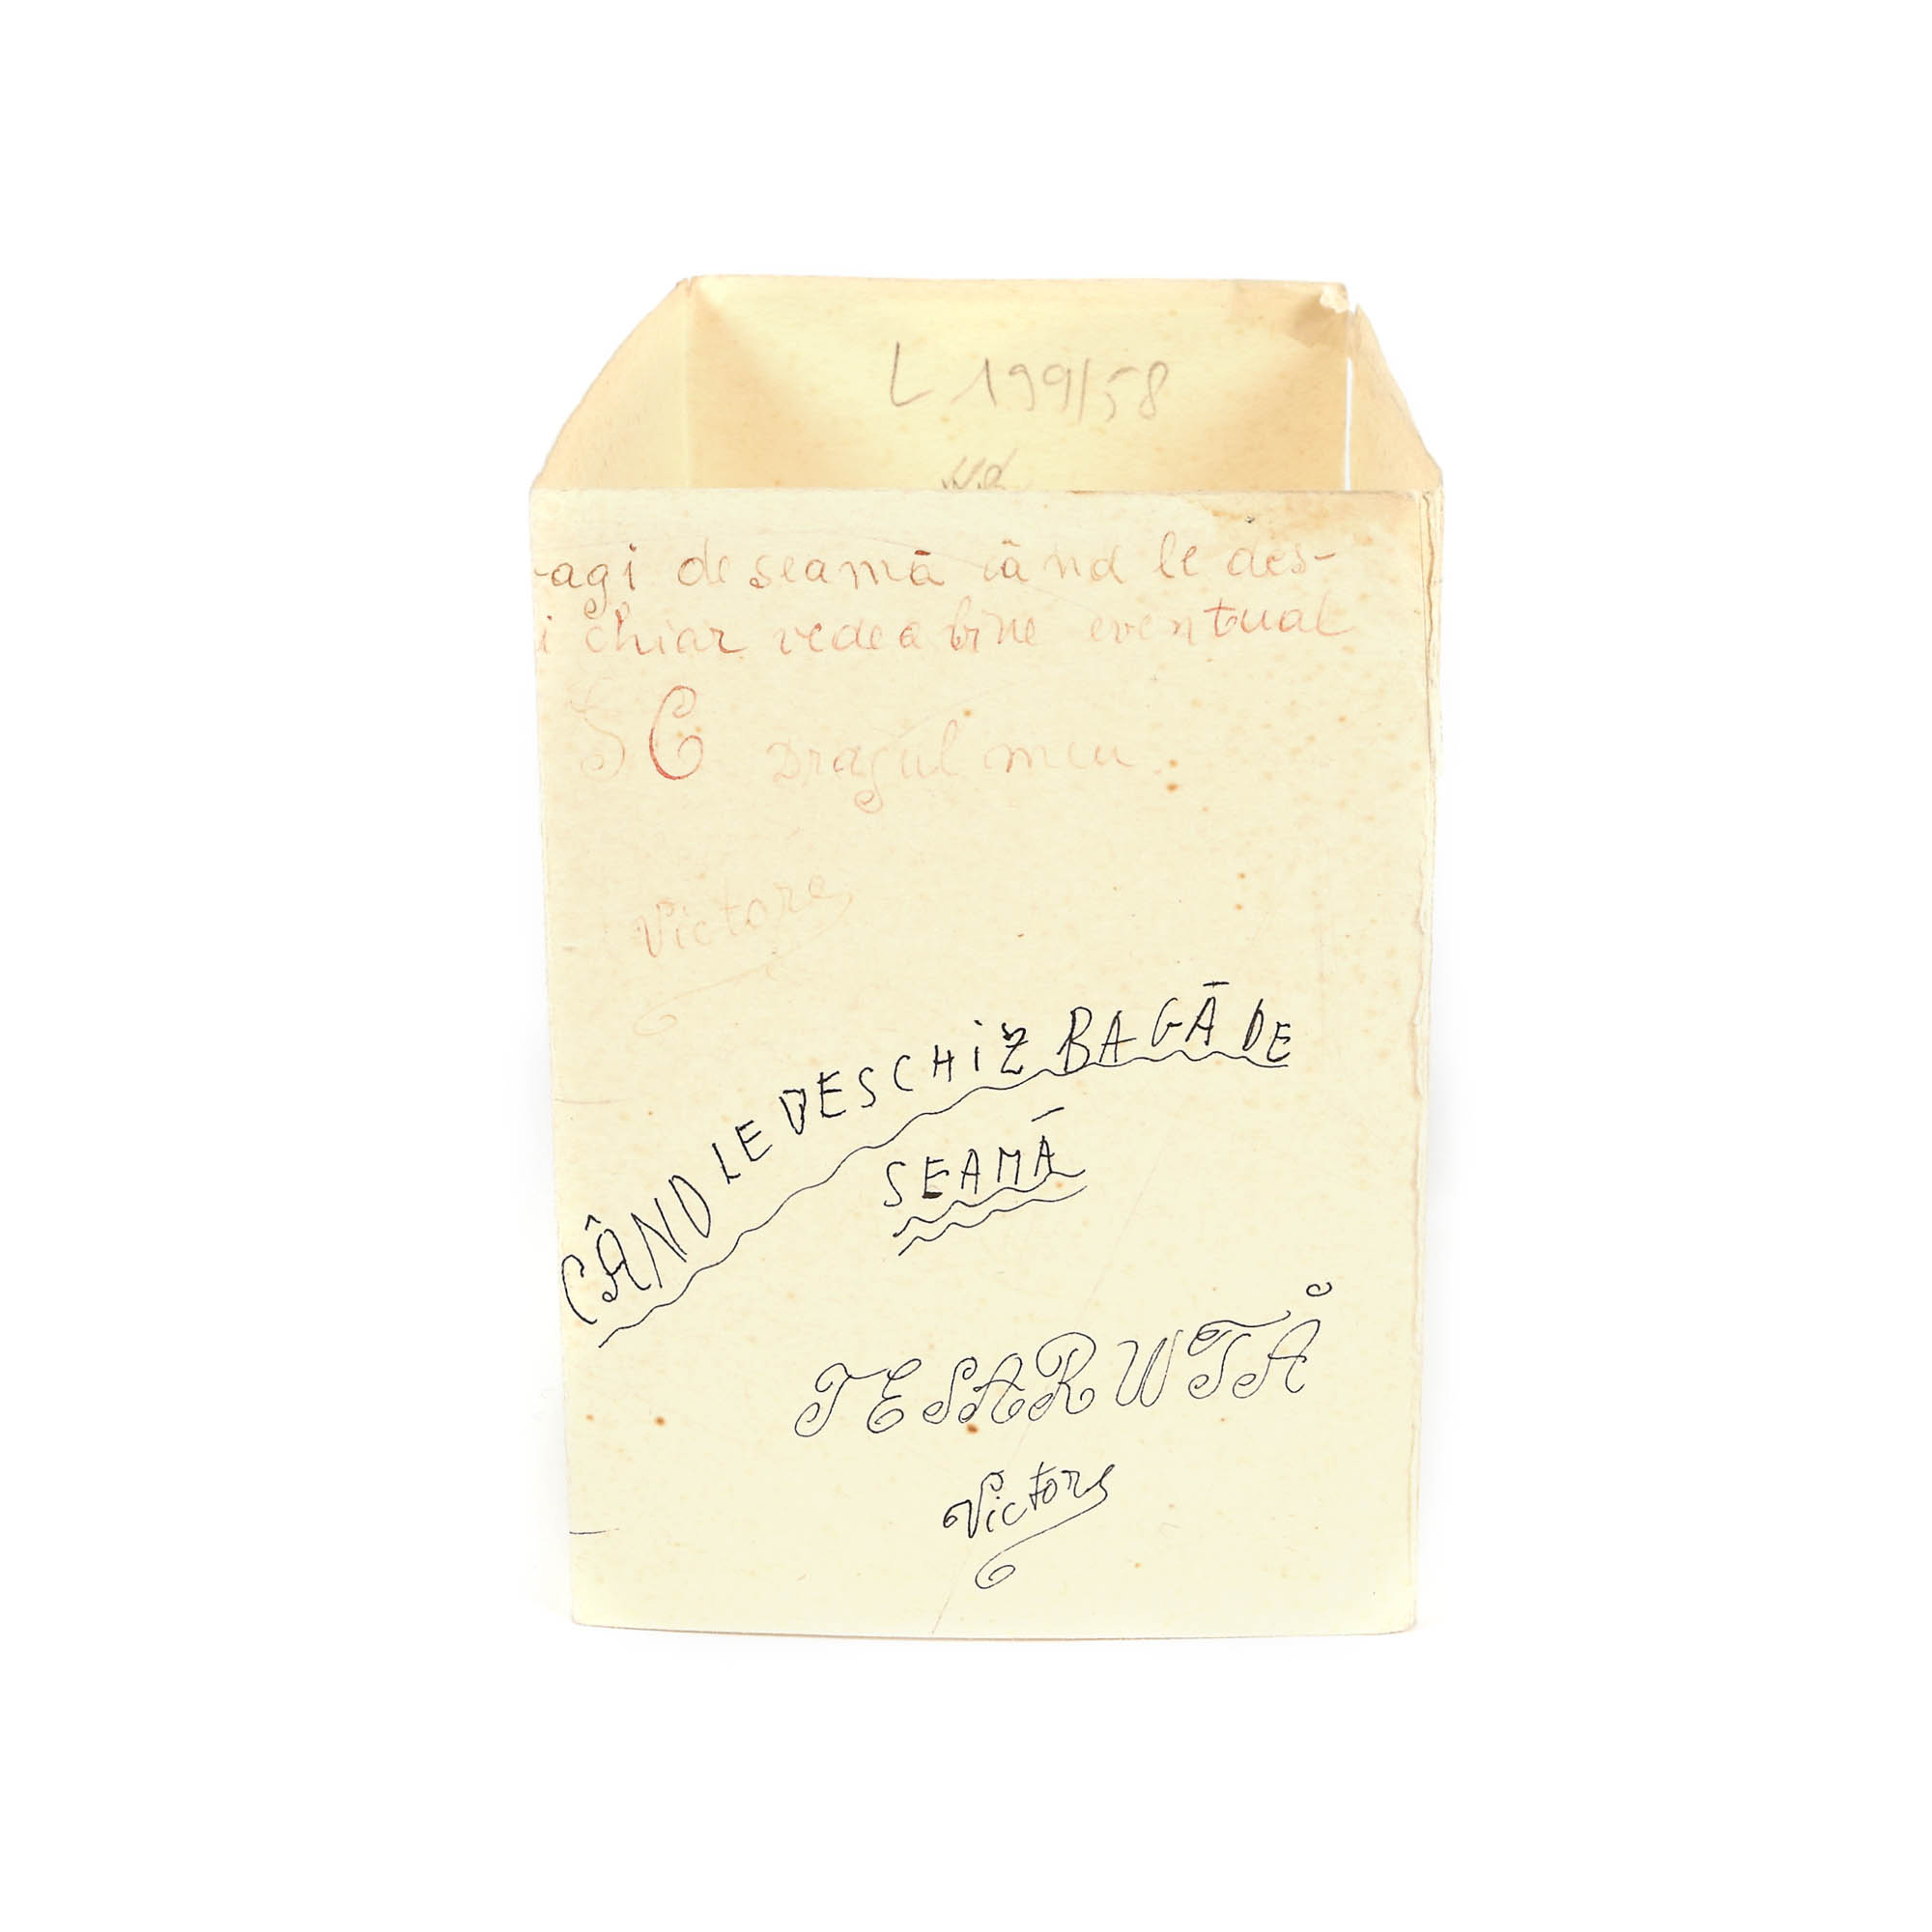 L 199/58
-agi de seamā când le des-
i chiar vedea bine eventual
SC Dragul meu
Victore
CÂND LE DESCHIZ BAGĀ DE
SEAMĀ
TE SARUTĂ
Victore